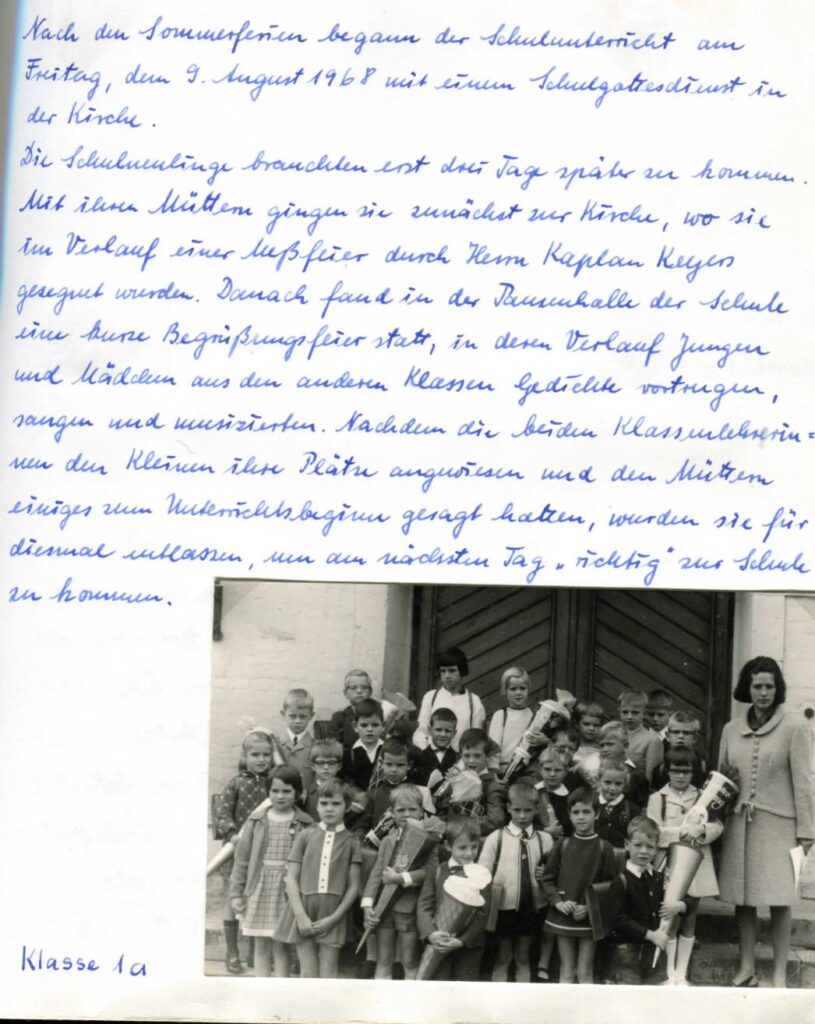 Nach den Sommerferien begann der Schulunterricht am
Freitag, dem 9. August 1968 mit einem Schulgottesdienst in
der Kirche.
Die Schulneulinge brauchten erst drei Tage später zu kommen.
Mit ihren Müttern gingen sie zunächst zur Kirche, wo sie
im Verlauf einer Meßfeier durch Herrn Kaplan Keyers
gesegnet wurden. Danach fand in der Pausenhalle der Schule
eine kurze Begrüßungsfeier statt, in deren Verlauf Jungen
und Mädchen aus den anderen Klassen Gedichte vortrugen,
sangen und musizierten. Nachdem die beiden Klassenlehrerin=
nen den Kleinen ihre Plätze angewiesen und den Müttern
einiges zum Unterrichtsbeginn gesagt hatten, wurden sie für
diesmal entlassen, um am nächsten Tag „richtig" zur Schule
zu kommen.
Klasse 1a